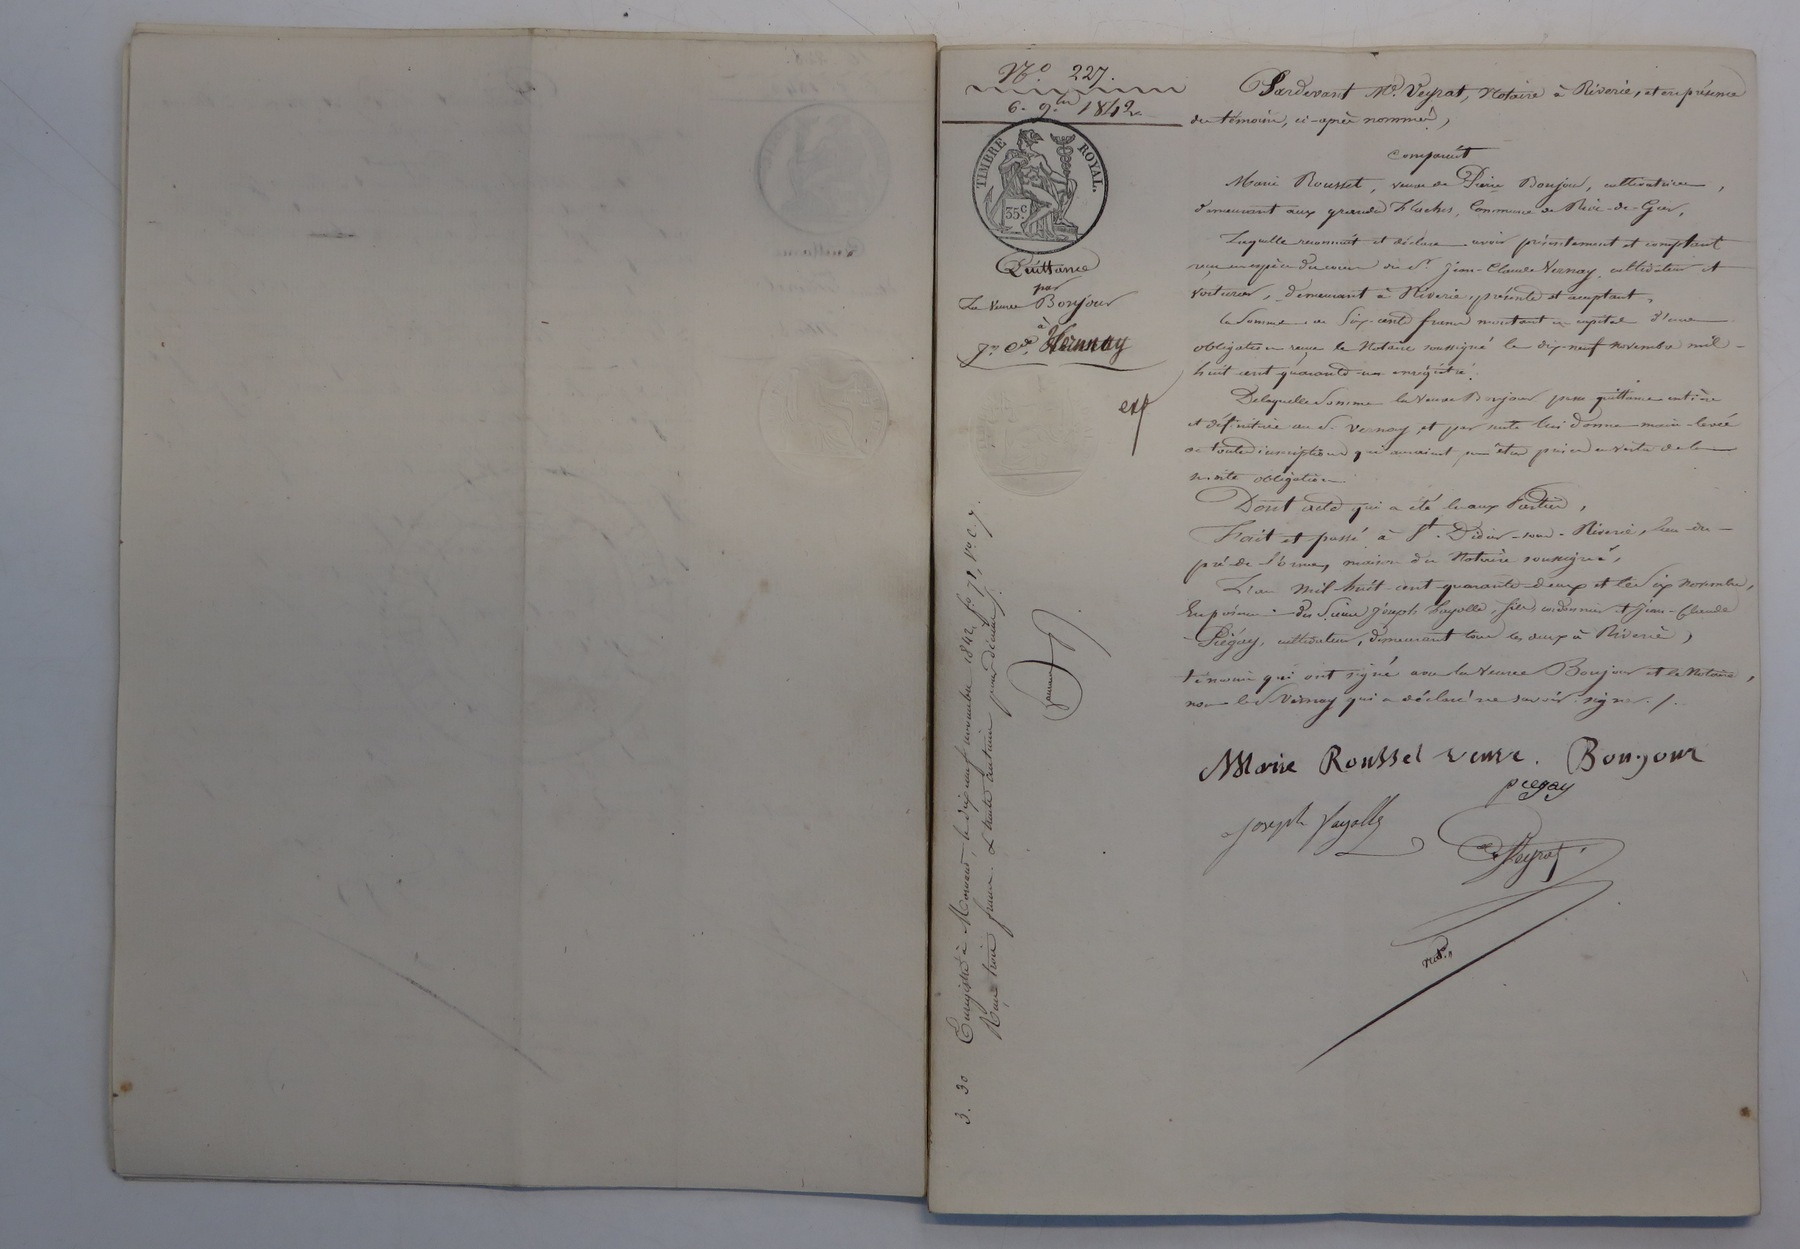 N.o 227.
6. 9.bre 1842
TIMBRE ROYAL.
35 c.
Quittance
par
La veuve Bonjour
à
Jn Cde Vernay
exp
Pardevant Me. Veyrat, Notaire à Riverie, et en présence
des témoins, ci-après nommés,
Comparait
Marie Rousset, veuve de Pierre Bonjour, cultivatrice,
demeurant aux grandes Flaches, Commune de Rive-de-Gier,
Laquelle reconnait et déclare avoir présentement et comptant
reçu en espèces du cours du Sr. Jean-Claude Vernay, cultivateur et
voiturier, demeurant à Riverie, présent et acceptant,
la Somme de Six-cents francs montant en capital d'une
obligation reçue le Notaire soussigné le dix-neuf novembre mil-
huit cent quarante-un enregistré.
De laquelle Somme la Veuve Bonjour passe quittance entière
et définitive au Sr. Vernay, et par suite lui donne main-levée
de toutes inscriptions qui auraient pu être prises en vertu de la
susdite obligation
Dont acte qui a été lu aux Parties,
Fait et passé à St. Didier-sous-Riverie, lieu du-
pré de l'orme, maison du Notaire soussigné,
L'an mil huit cent quarante-deux et le Six novembre,
En présence des Sieurs Joseph Fayolle, fils cordonnier et Jean-Claude
Piégay, cultivateur, demeurant tous les deux à Riverie,
témoins qui ont signé avec la veuve Bonjour et le Notaire,
non le Sr Vernay qui a déclaré ne savoir signer. /.
Marie Roussel veuve. Bonjour
piegay
Joseph Fayolle
Veyrat
not.re
Enregistré à Mornant, le dix neuf novembre 1842, fo 71, Vo c. 7.
Reçu trois francs & trente centimes pour décime /.
3. 30